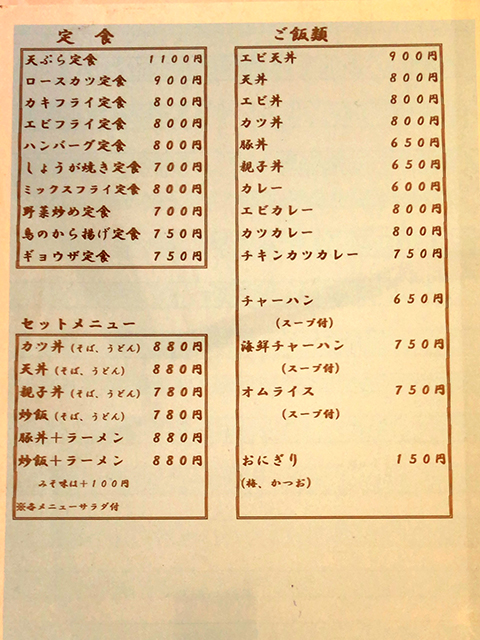 定食
天ぷら定食 1100円
ロースカツ定食 900円
カキフライ定食 800円
エビフライ定食 800円
ハンバーグ定食 800円
しょうが焼き定食 700円
ミックスフライ定食 800円
野菜炒め定食 700円
鳥のから揚げ定食 750円
ギョウザ定食 750円
セットメニュー
カツ丼(そば、うどん) 880円
天丼(そば、うどん) 880円
親子丼(そば、うどん) 780円
炒飯(そば、うどん) 780円
豚丼+ラーメン 880円
炒飯+ラーメン 880円
みそ味は+100円
※各メニューサラダ付
ご飯類
エビ天丼 900円
天丼 800円
エビ丼 800円
カツ丼 800円
豚丼 650円
親子丼 650円
カレー 600円
エビカレー 800円
カツカレー 800円
チキンカツカレー 750円
チャーハン 650円
(スープ付)
海鮮チャーハン 750円
(スープ付)
オムライス 750円
(スープ付)
おにぎり 150円
(梅、かつお)